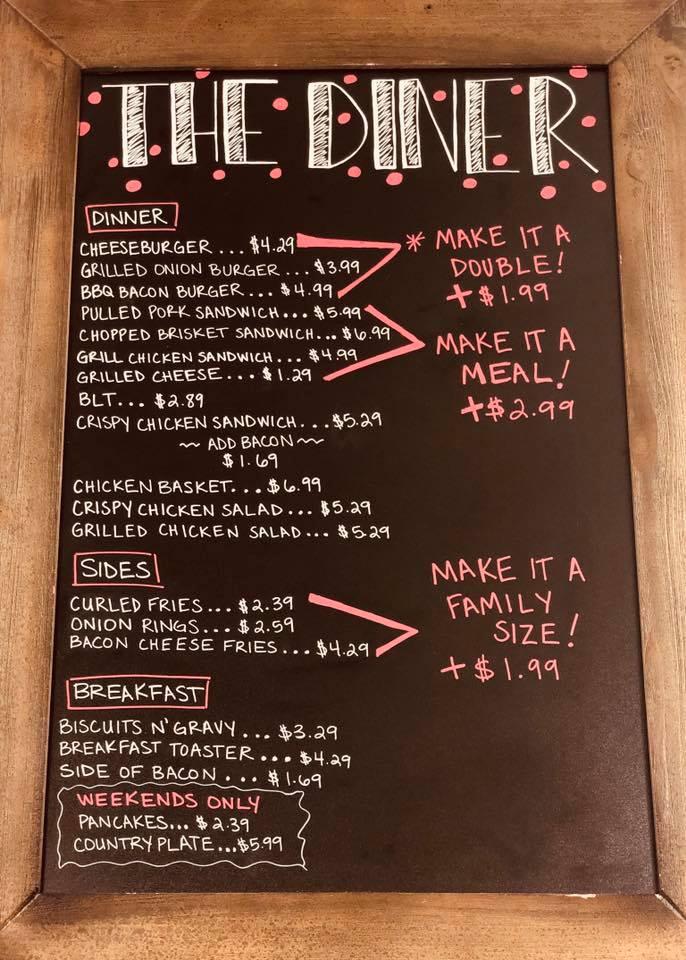 THE DINER
DINNER
CHEESEBURGER ... $4.29
GRILLED ONION BURGER ... $3.99
BBQ BACON BURGER ... $4.99
* MAKE IT A
DOUBLE!
+$1.99
PULLED PORK SANDWICH ... $5.99
CHOPPED BRISKET SANDWICH ... $6.99
GRILL CHICKEN SANDWICH ... $4.99
GRILLED CHEESE ... $1.29
MAKE IT A
MEAL!
+$2.99
BLT ... $2.89
CRISPY CHICKEN SANDWICH ... $5.29
~ ADD BACON ~
$1.69
CHICKEN BASKET ... $6.99
CRISPY CHICKEN SALAD ... $5.29
GRILLED CHICKEN SALAD ... $5.29
SIDES
CURLED FRIES ... $2.39
ONION RINGS ... $2.59
BACON CHEESE FRIES ... $4.29
MAKE IT A
FAMILY
SIZE!
+$1.99
BREAKFAST
BISCUITS N' GRAVY ... $3.29
BREAKFAST TOASTER ... $4.29
SIDE OF BACON ... $1.69
WEEKENDS ONLY
PANCAKES ... $2.39
COUNTRY PLATE ... $5.99